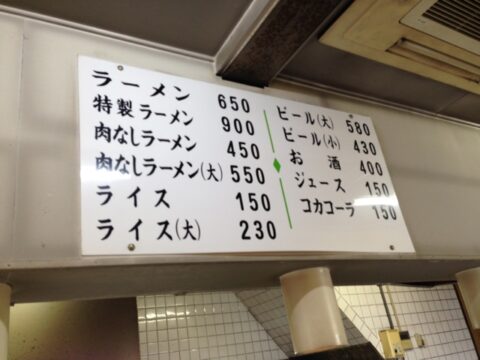 ラーメン 650
特製ラーメン 900
肉なしラーメン 450
肉なしラーメン(大) 550
ライス 150
ライス(大) 230
ビール(大) 580
ビール(小) 430
お酒 400
ジュース 150
コカコーラ 150